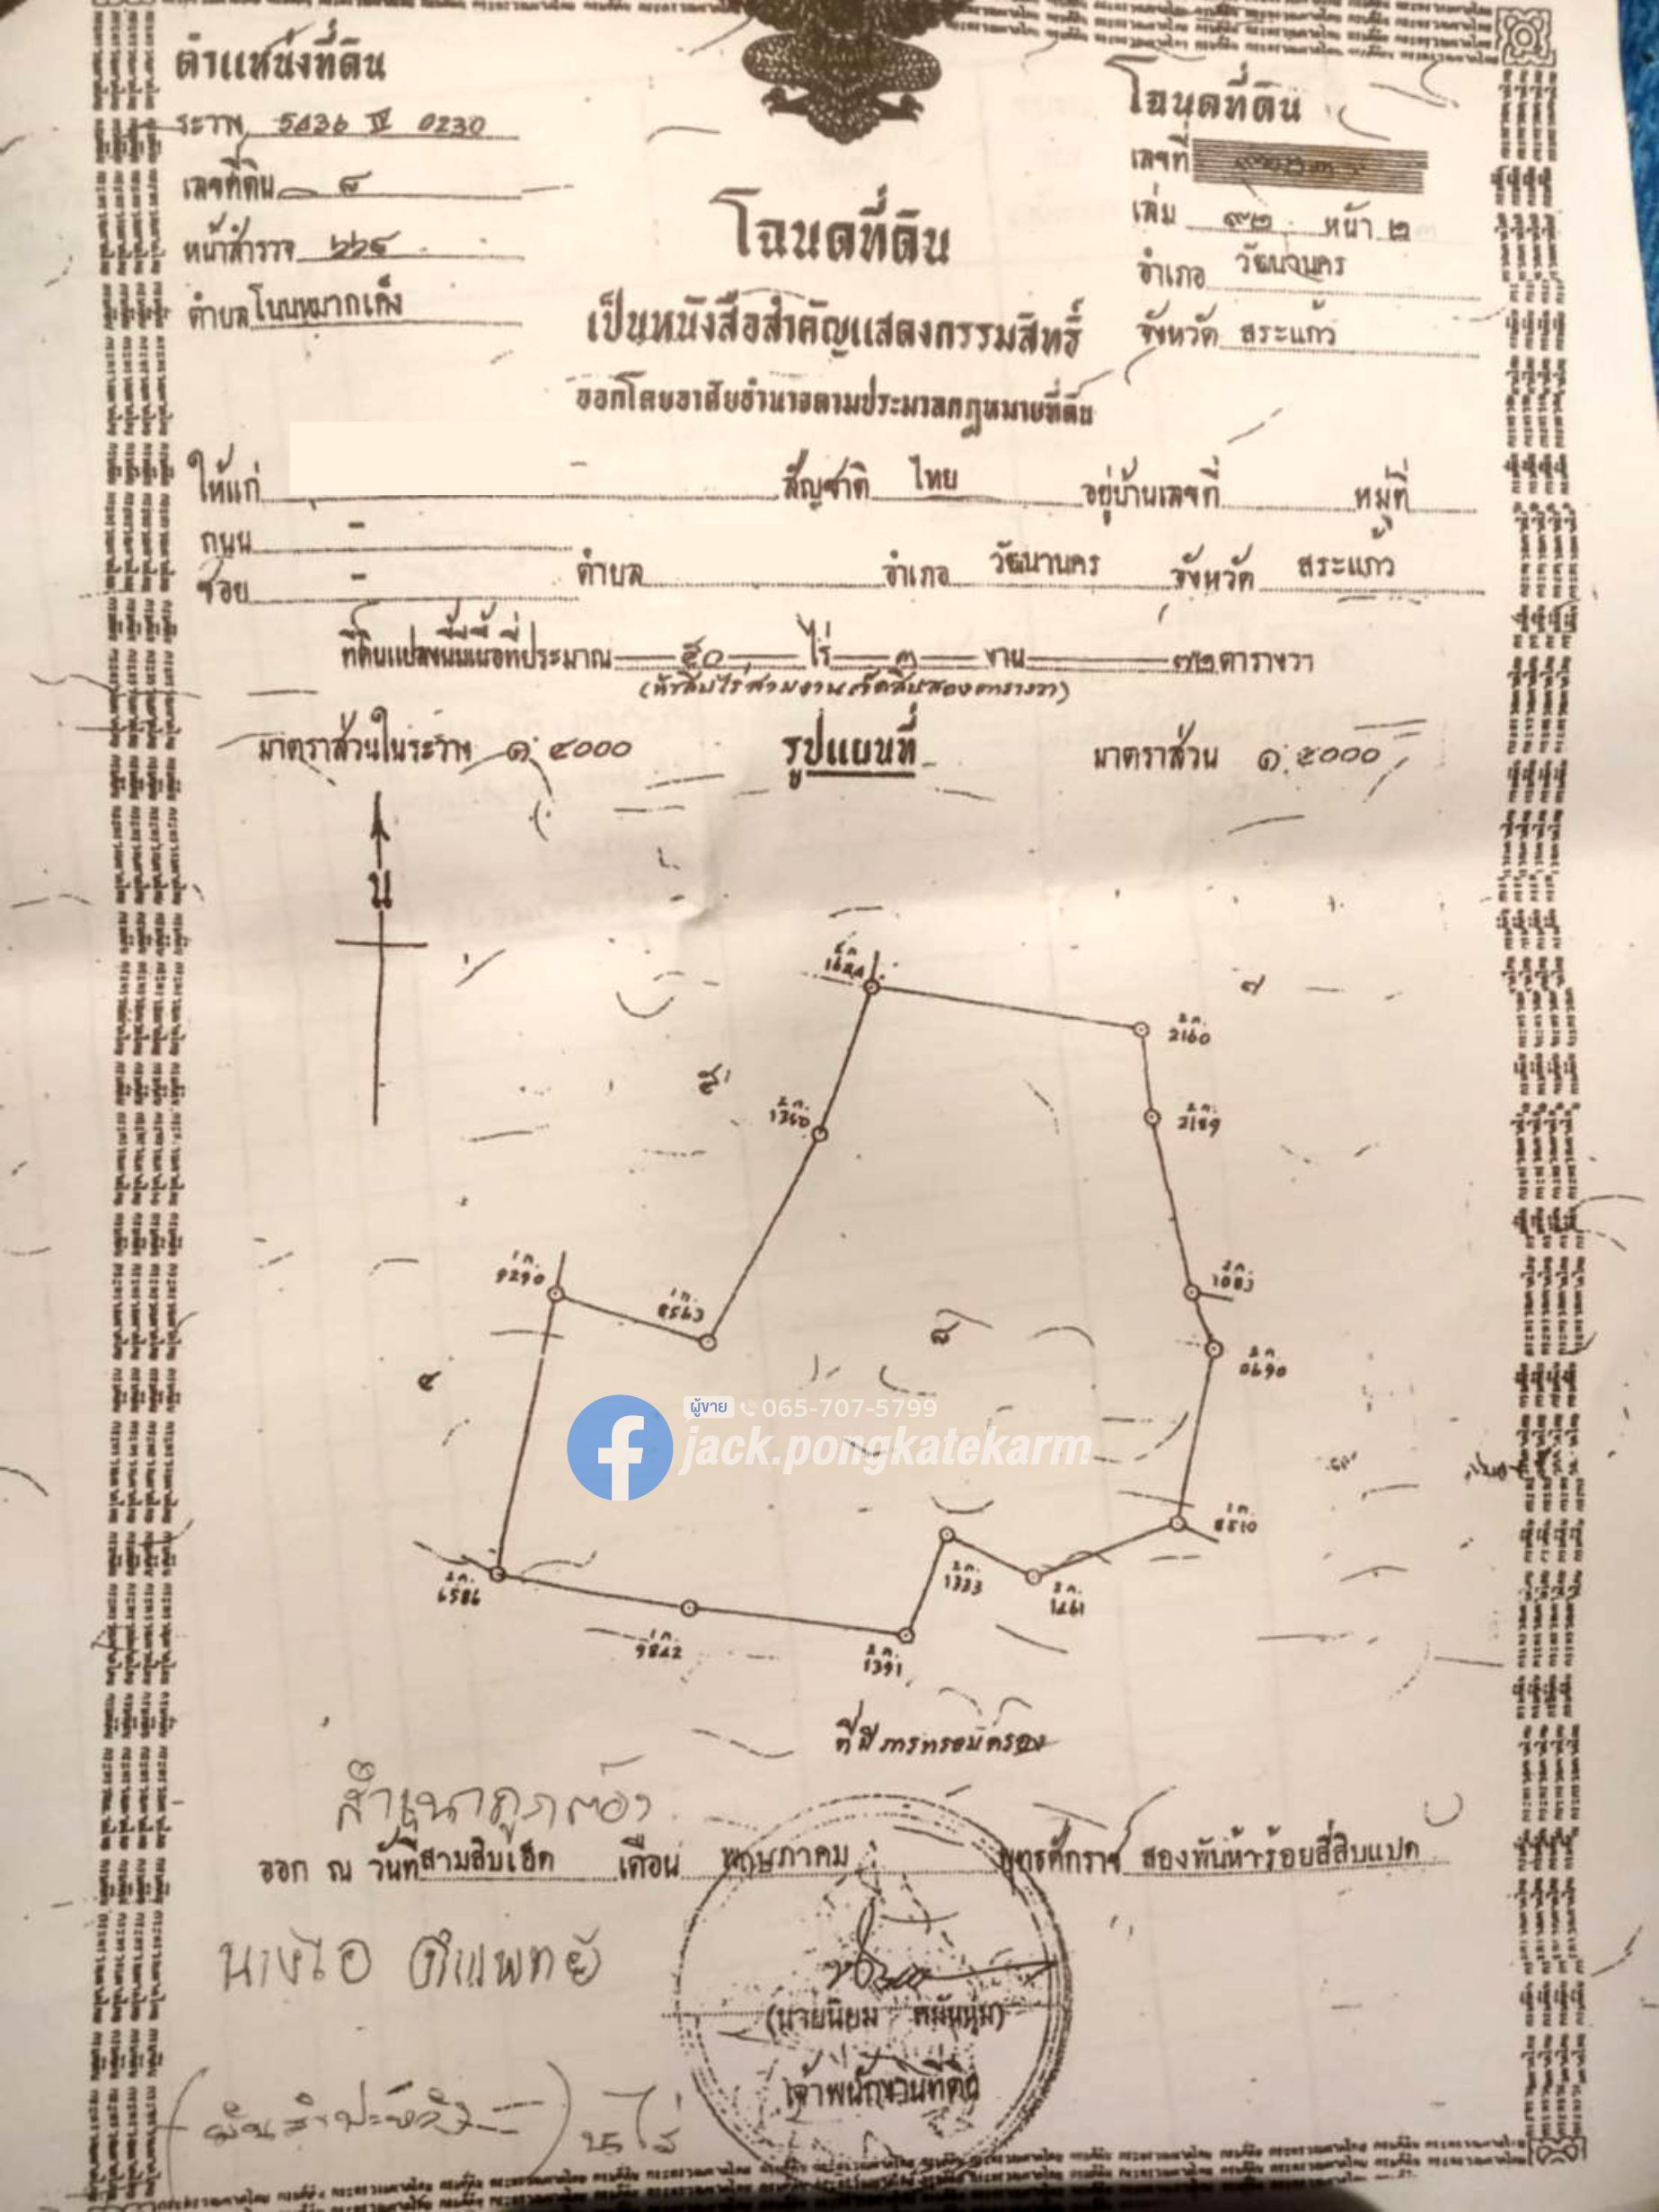 ตำแหน่งที่ดิน
ระวาง 5436 IV 0230
เลขที่ดิน ๘
หน้าสำรวจ
ตำบล โนนหมากเค็ง
โฉนดที่ดิน
เลขที่
เล่ม ๙๒ หน้า ๒
อำเภอ วัฒนานคร
จังหวัด สระแก้ว
โฉนดที่ดิน
เป็นหนังสือสำคัญแสดงกรรมสิทธิ์
ออกโดยอาศัยอำนาจตามประมวลกฎหมายที่ดิน
ให้แก่ สัญชาติ ไทย อยู่บ้านเลขที่ หมู่ที่
ถนน -
ซอย - ตำบล อำเภอ วัฒนานคร จังหวัด สระแก้ว
ที่ดินแปลงนี้มีเนื้อที่ประมาณ ๕๐ ไร่ ๓ งาน ๗๒ ตารางวา
(ห้าสิบไร่สามงานเจ็ดสิบสองตารางวา)
มาตราส่วนในระวาง ๑:๔๐๐๐ รูปแผนที่ มาตราส่วน ๑:๕๐๐๐
น
๗
2160
2189
1360
1083
9290
8563
๘
0690
๔
ผู้ขาย 065-707-5799
jack.pongkatekarm
8510
1333
6586
9842
1391
ที่มีการครอบครอง
สำเนาถูกต้อง
ออก ณ วันที่ สามสิบเอ็ด เดือน พฤษภาคม พุทธศักราช สองพันห้าร้อยสี่สิบแปด
(นายนิยม หมั่นนุ่ม)
เจ้าพนักงานที่ดิน
(มันสำปะหลัง)